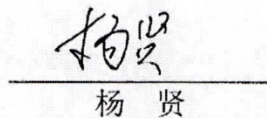 杨贤
杨 贤